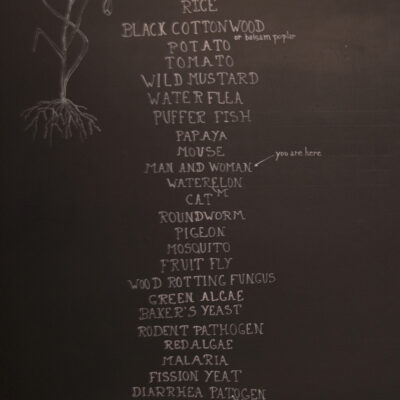 RICE
BLACK COTTONWOOD
or balsam poplar
POTATO
TOMATO
WILD MUSTARD
WATER FLEA
PUFFER FISH
PAPAYA
MOUSE
you are here
MAN AND WOMAN
WATERELON
M
CAT
ROUNDWORM
PIGEON
MOSQUITO
FRUIT FLY
WOOD ROTTING FUNGUS
GREEN ALGAE
BAKER'S YEAST
RODENT PATHOGEN
RED ALGAE
MALARIA
FISSION YEAT
DIARRHEA PATOGEN